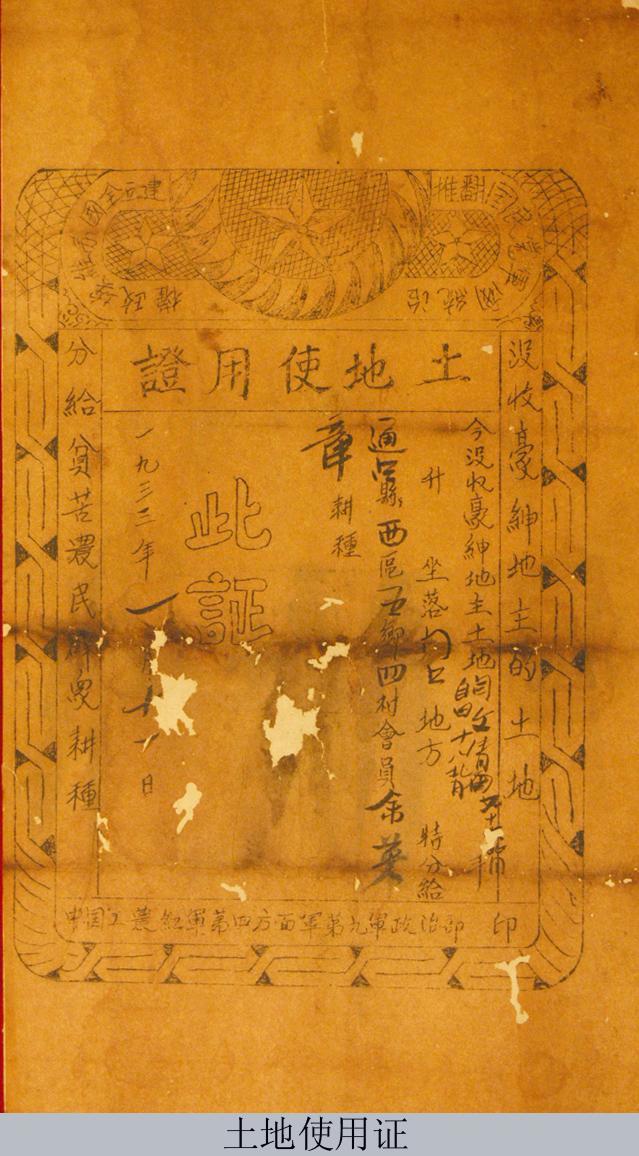 推翻國民黨
國統治
建立全國
蘇維埃政權
土地使用證
没收豪紳地主的土地
今没收豪紳地主土地
升 坐落門口地方 特分給
通江縣西區五鄉四村會員余英
章耕種
此証
一九三三年一月十一日
分給貧苦農民群眾耕種
中国工農紅軍第四方面軍第九軍政治部 印
土地使用证